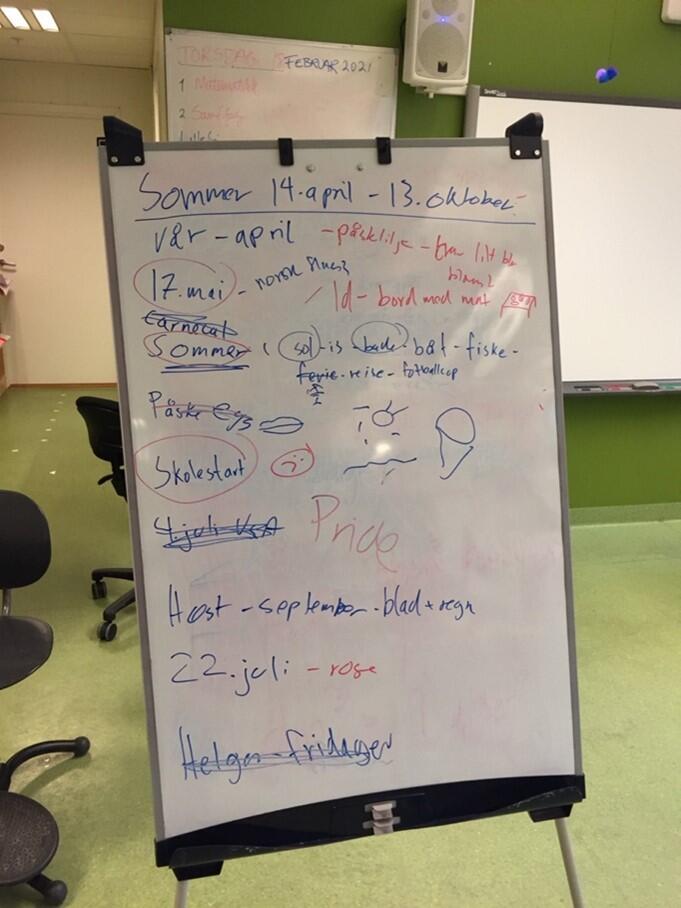 TORSDAG FEBRUAR 2021
1 Matematikk
2
Sommer 14.april - 13.oktober
vår - april - påsklilje -
17.mai - norsk
/ Id - bord med mat
Carneval
Sommer ( sol - is - bade - båt - fiske -
ferie - reise - fotballcup
Påske
Skolestart
4.juli USA Pride
Høst - september - blad + regn
22.juli - rose
Helger - fridager